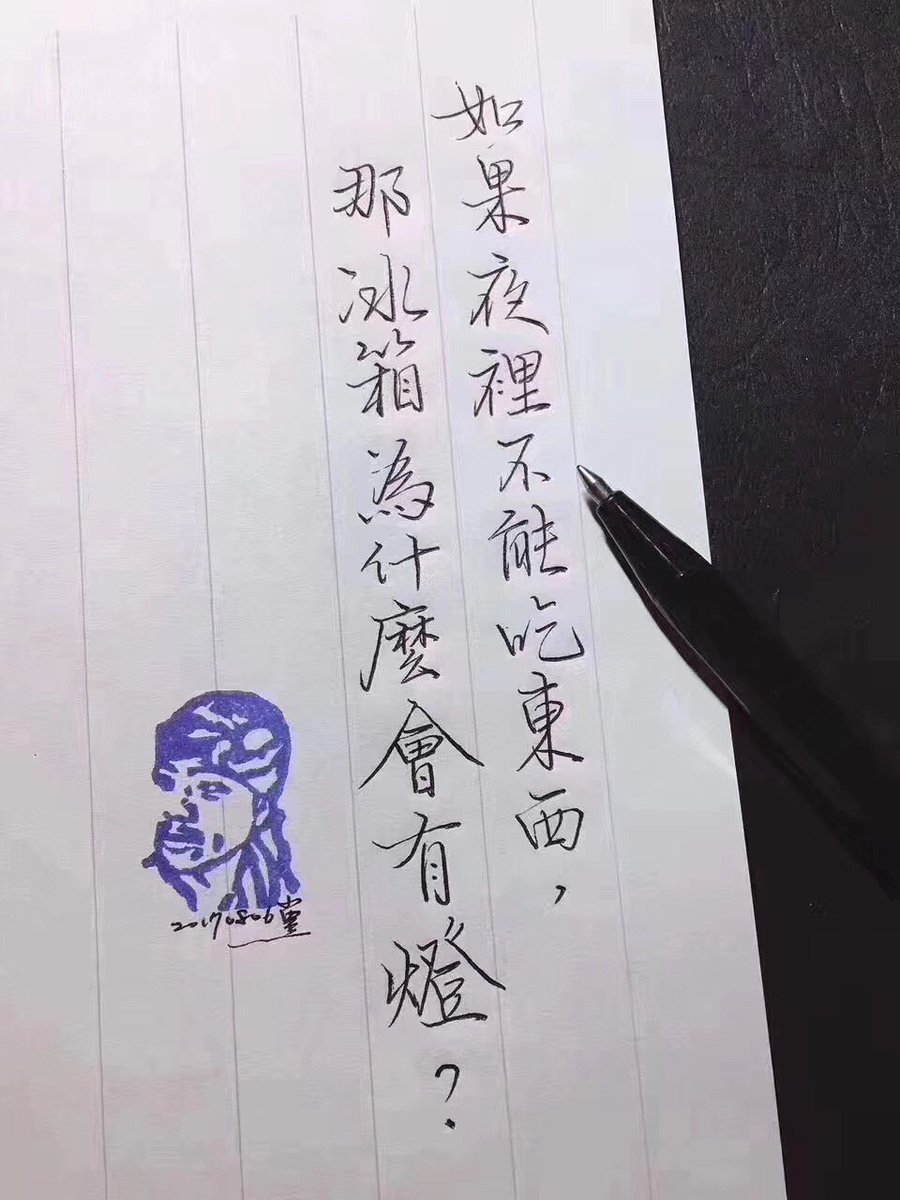 如果夜裡不能吃東西，
那冰箱為什麼會有燈？
20170806堂